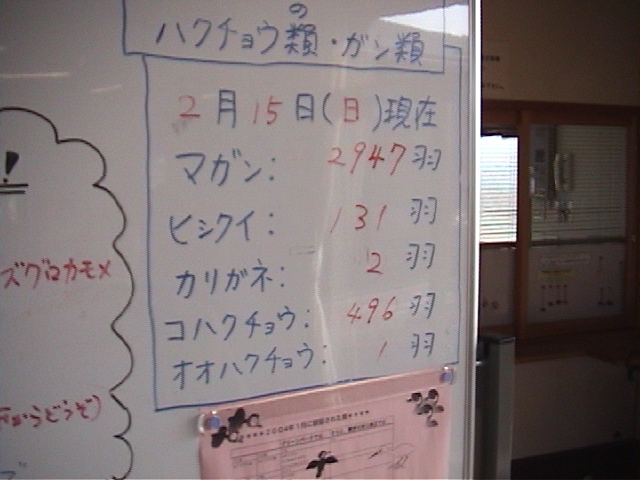 ハクチョウの類・ガン類
2月15日(日)現在
マガン: 2947羽
ヒシクイ: 131羽
カリガネ: 2羽
コハクチョウ: 496羽
オオハクチョウ: 1羽
!
ズグロカモメ
からどうぞ)